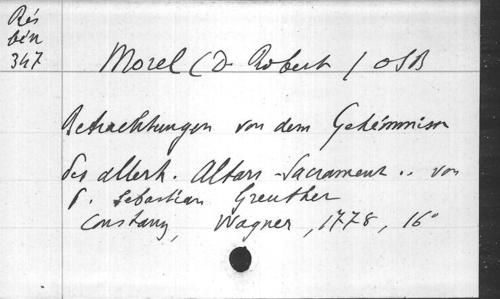 Rés
bén
347
Morel (D Robert) OSB
Betrachtungen von dem Gehéimnisse
des allerh. Altars-Sacrament .. von
P. Sebastian Greuther
Constanz, Wagner, 1778, 16°